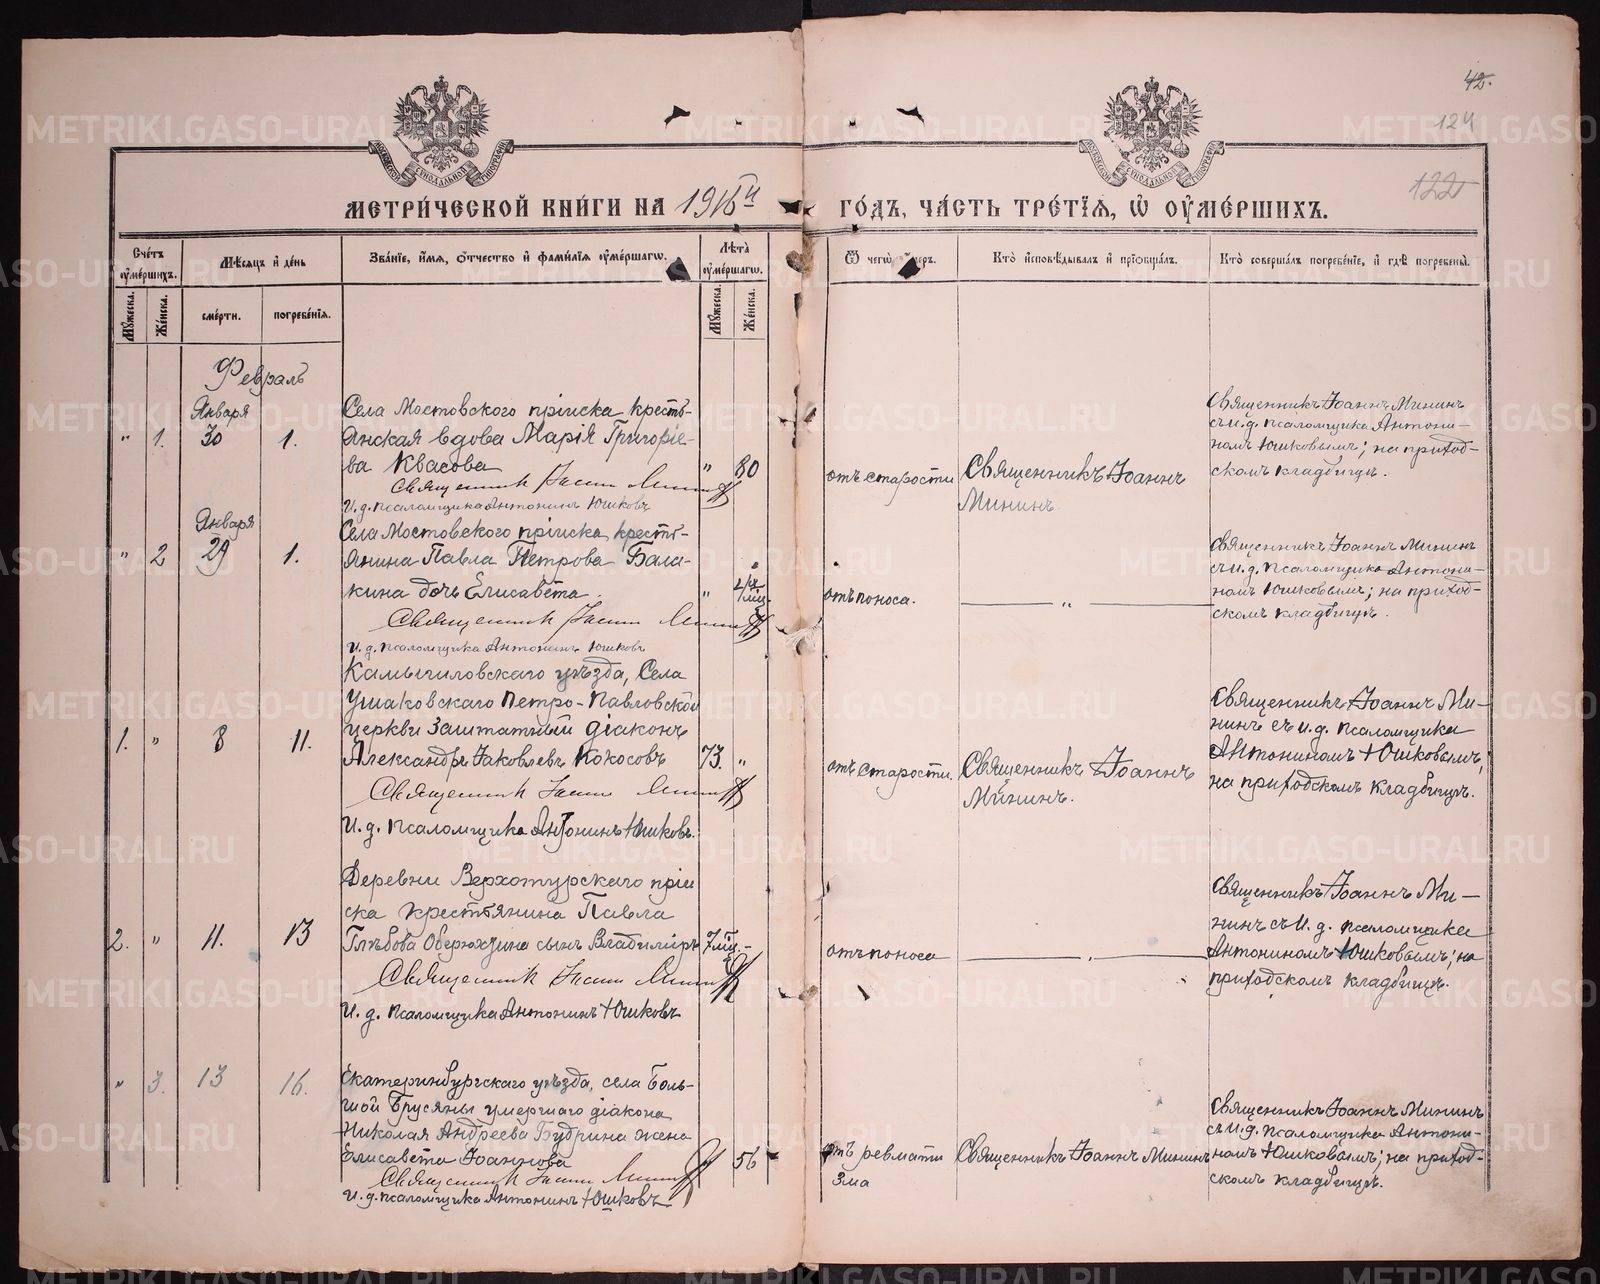 42.
124
122
МОСКОВСКОЙ СѴНОДАЛЬНОЙ ТИПОГРАФІИ
МОСКОВСКОЙ СѴНОДАЛЬНОЙ ТИПОГРАФІИ
МЕТРИ́ЧЕСКОЙ КНИ́ГИ НА 1916й ГО́ДЪ, ЧА́СТЬ ТРЕ́ТІѦ, Ѡ ОУМЕ́РШИХЪ.
Сче́тъ оуме́ршихъ.
Мѣсяцъ и де́нь
Зва́нїе, и́мя, о́тчество и фами́лїя оуме́ршагѡ.
Лѣта̀ оуме́ршагѡ.
Ѿ чегѡ̀ оу́меръ.
Кто̀ и҆сповѣ́дывалъ и҆ прїѡбща́лъ.
Кто̀ соверша́лъ погребе́нїе, и҆ гдѣ̀ погребены̀.
Мꙋ́жеска.
Же́нска.
сме́рти.
погребе́нїѧ.
Мꙋ́жеска.
Же́нска.
Февраль
„ 1.
Января
30
1.
Села Мостовского пріиска кресть-
янская вдова Марія Григоріе-
ва Квасова
„ 80
Священник Іоанн Минин
И. д. псаломщика Антонинъ Юшковъ
отъ старости
Священникъ Іоаннъ
Мининъ.
Священникъ Іоаннъ Мининъ
съ и. д. псаломщика Антони-
номъ Юшковымъ; на приход-
скомъ кладбищѣ.
„ 2
Января
29
1.
Села Мостовского пріиска кресть-
янина Павла Петрова Бала-
кина дочь Елисавета.
„ 4 мѣц.
Священник Іоанн Минин
И. д. псаломщика Антонинъ Юшковъ
отъ поноса.
„
Священникъ Іоаннъ Мининъ
съ и. д. псаломщика Антони-
номъ Юшковымъ; на приход-
скомъ кладбищѣ.
1. „
8
11.
Камышловскаго уѣзда, Села
Ушаковскаго Петро-Павловской
церкви Заштатный діаконъ
Александръ Іаковлевъ Кокосовъ
73. „
Священник Іоанн Минин
И. д. псаломщика Антонинъ Юшковъ.
отъ старости.
Священникъ Іоаннъ
Мининъ.
Священникъ Іоаннъ Ми-
нинъ съ и. д. псаломщика
Антониномъ Юшковымъ;
на приходскомъ кладбищѣ.
2. „
11.
13
Деревни Верхотурскаго прiи
ска крестьянина Павла
Глѣбова Оберюхтина сынъ Владиміръ
7 мѣц. -
Священник Іоанн Минин
И. д. псаломщика Антонинъ Юшковъ
отъ поноса
Священникъ Іоаннъ Ми-
нинъ съ И. д. псаломщика
Антониномъ Юшковымъ; на
приходскомъ кладбищѣ.
„ 3.
13
16.
Екатеринбургскаго уѣзда, села Боль-
шой Брусяны умершаго діакона
Николая Андреева Будрина жена
Елисавета Іоаннова
56
Священник Іоанн Минин
И. д. псаломщика Антонинъ Юшковъ
отъ ревмати
зма
Священникъ Іоаннъ Мининъ
Священникъ Іоаннъ Мининъ
съ И. д. псаломщика Антони-
номъ Юшковымъ; на приход-
скомъ кладбищѣ.
METRIKI.GASO-URAL.RU